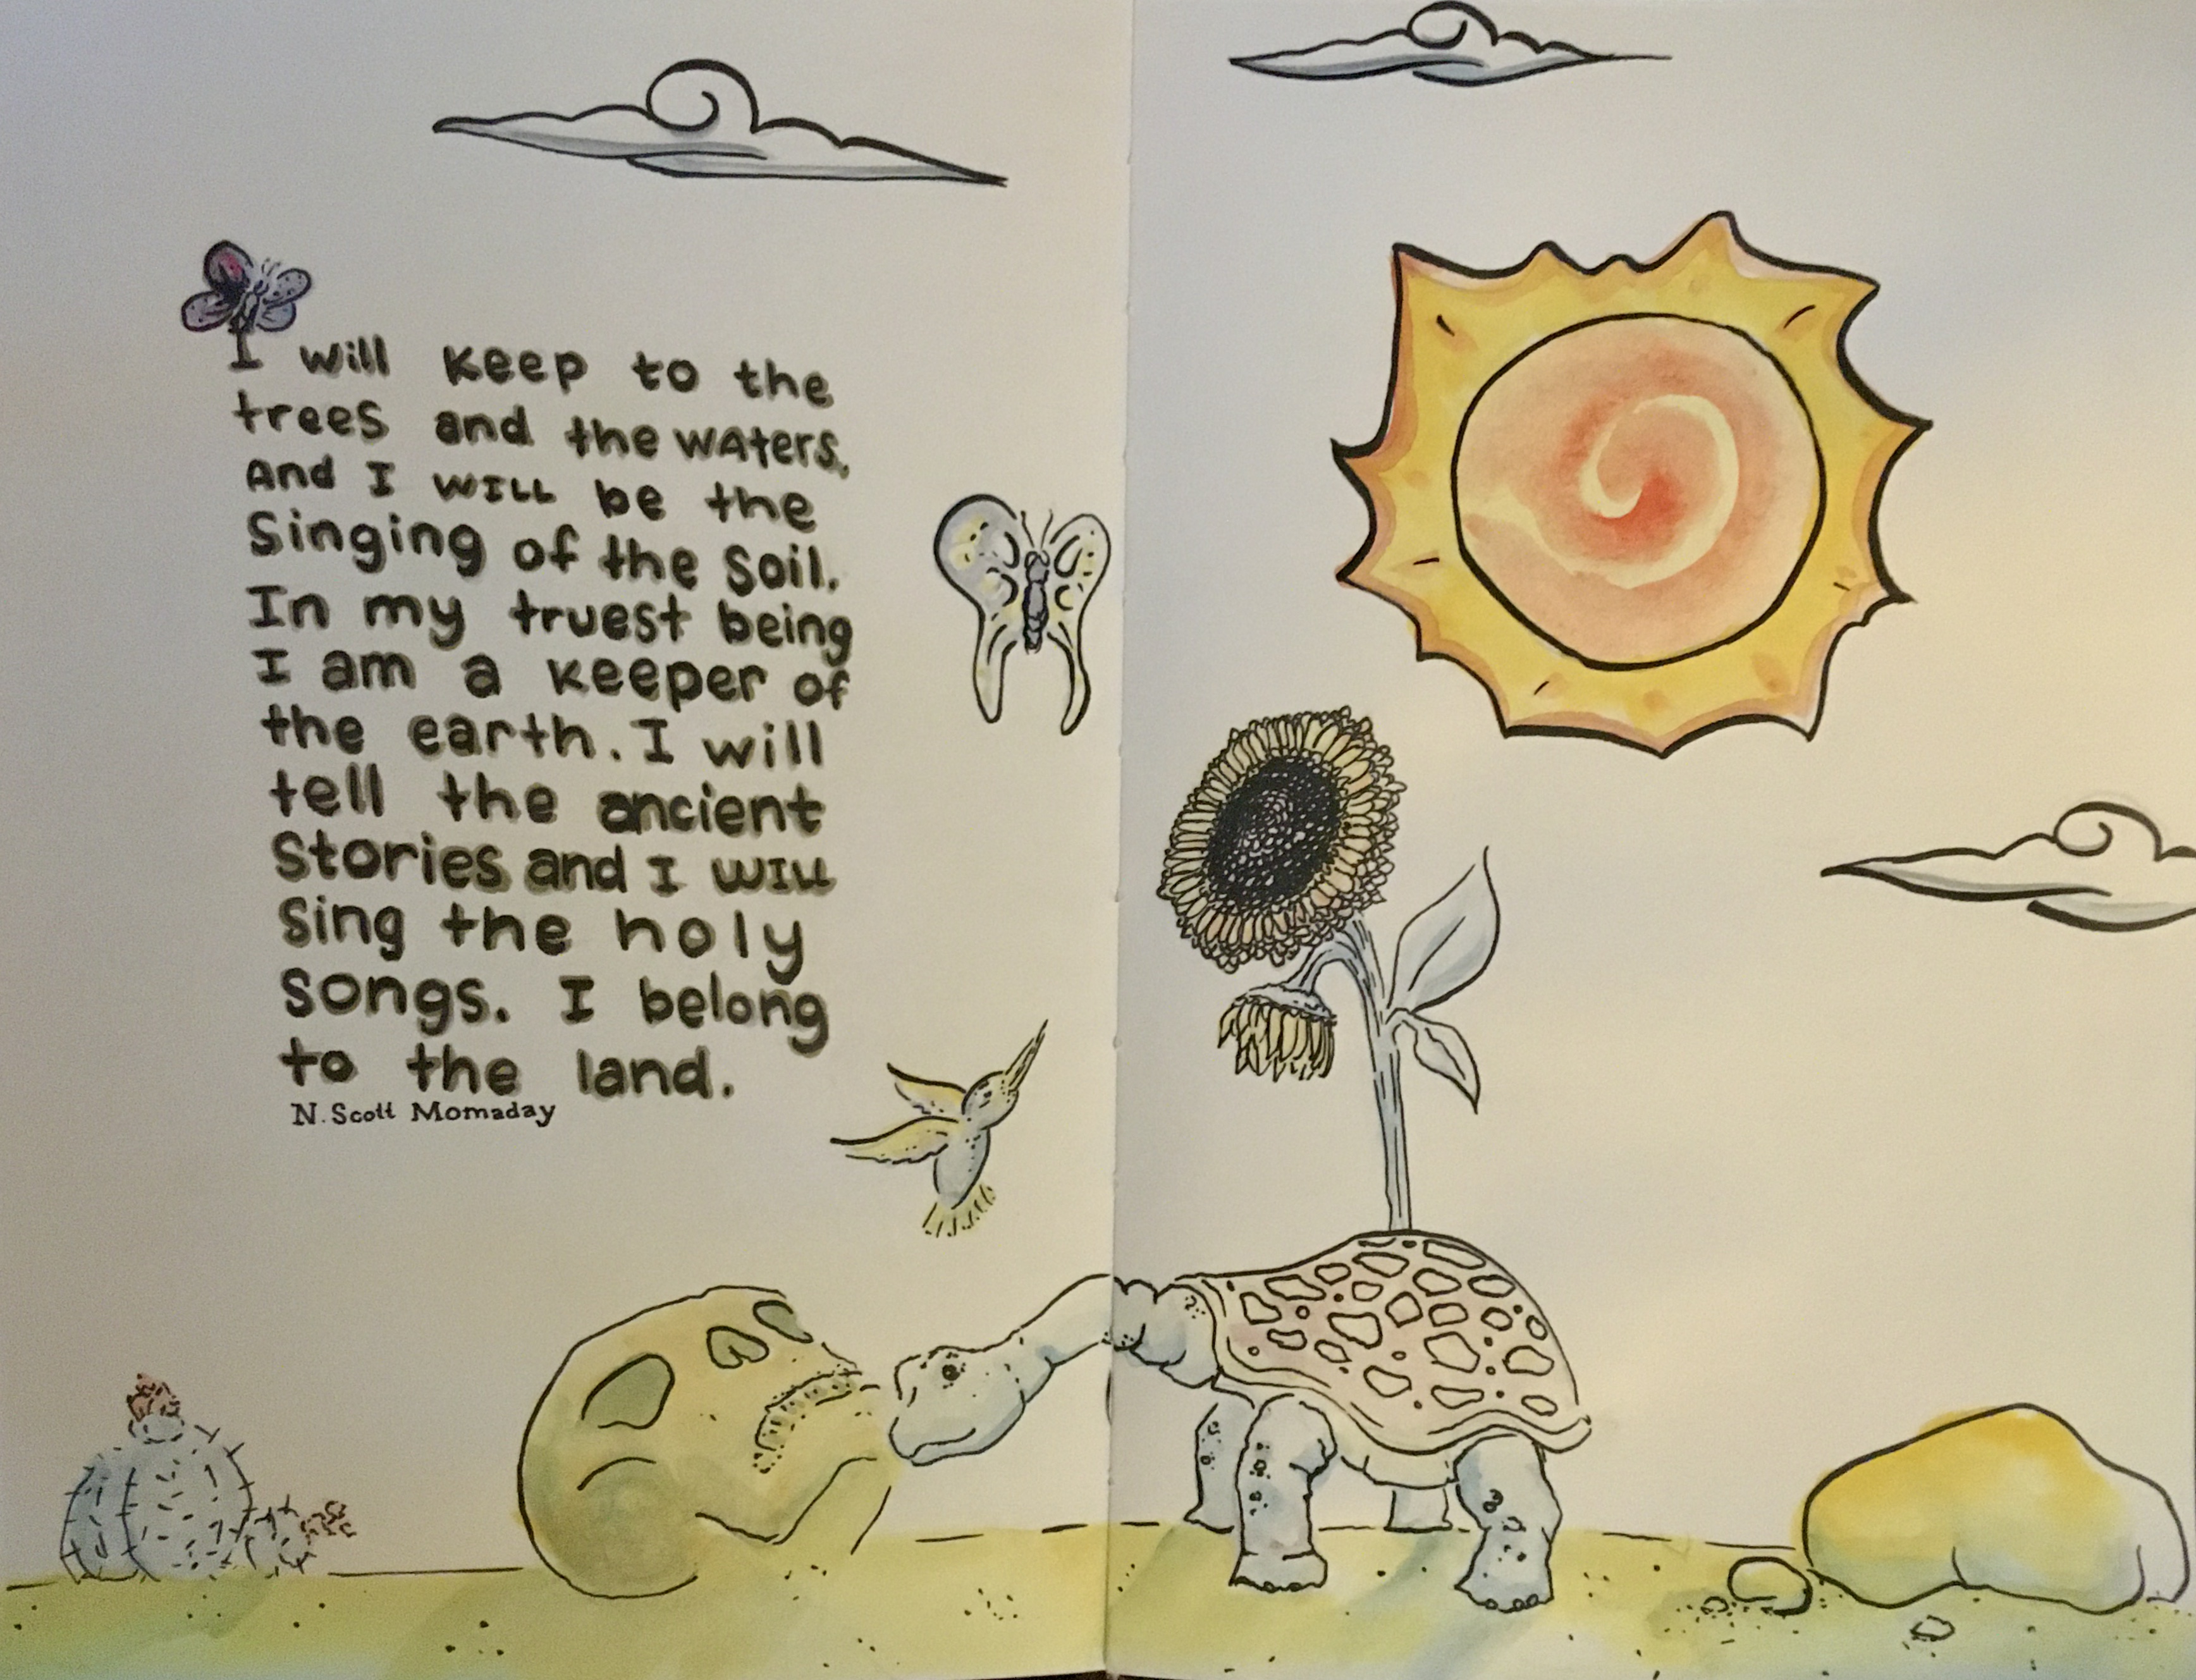 I will keep to the
trees and the WAters,
And I WILL be the
Singing of the Soil.
In my truest being
I am a keeper of
the earth. I will
tell the ancient
Stories and I WILL
Sing the holy
songs. I belong
to the land.
N. Scott Momaday